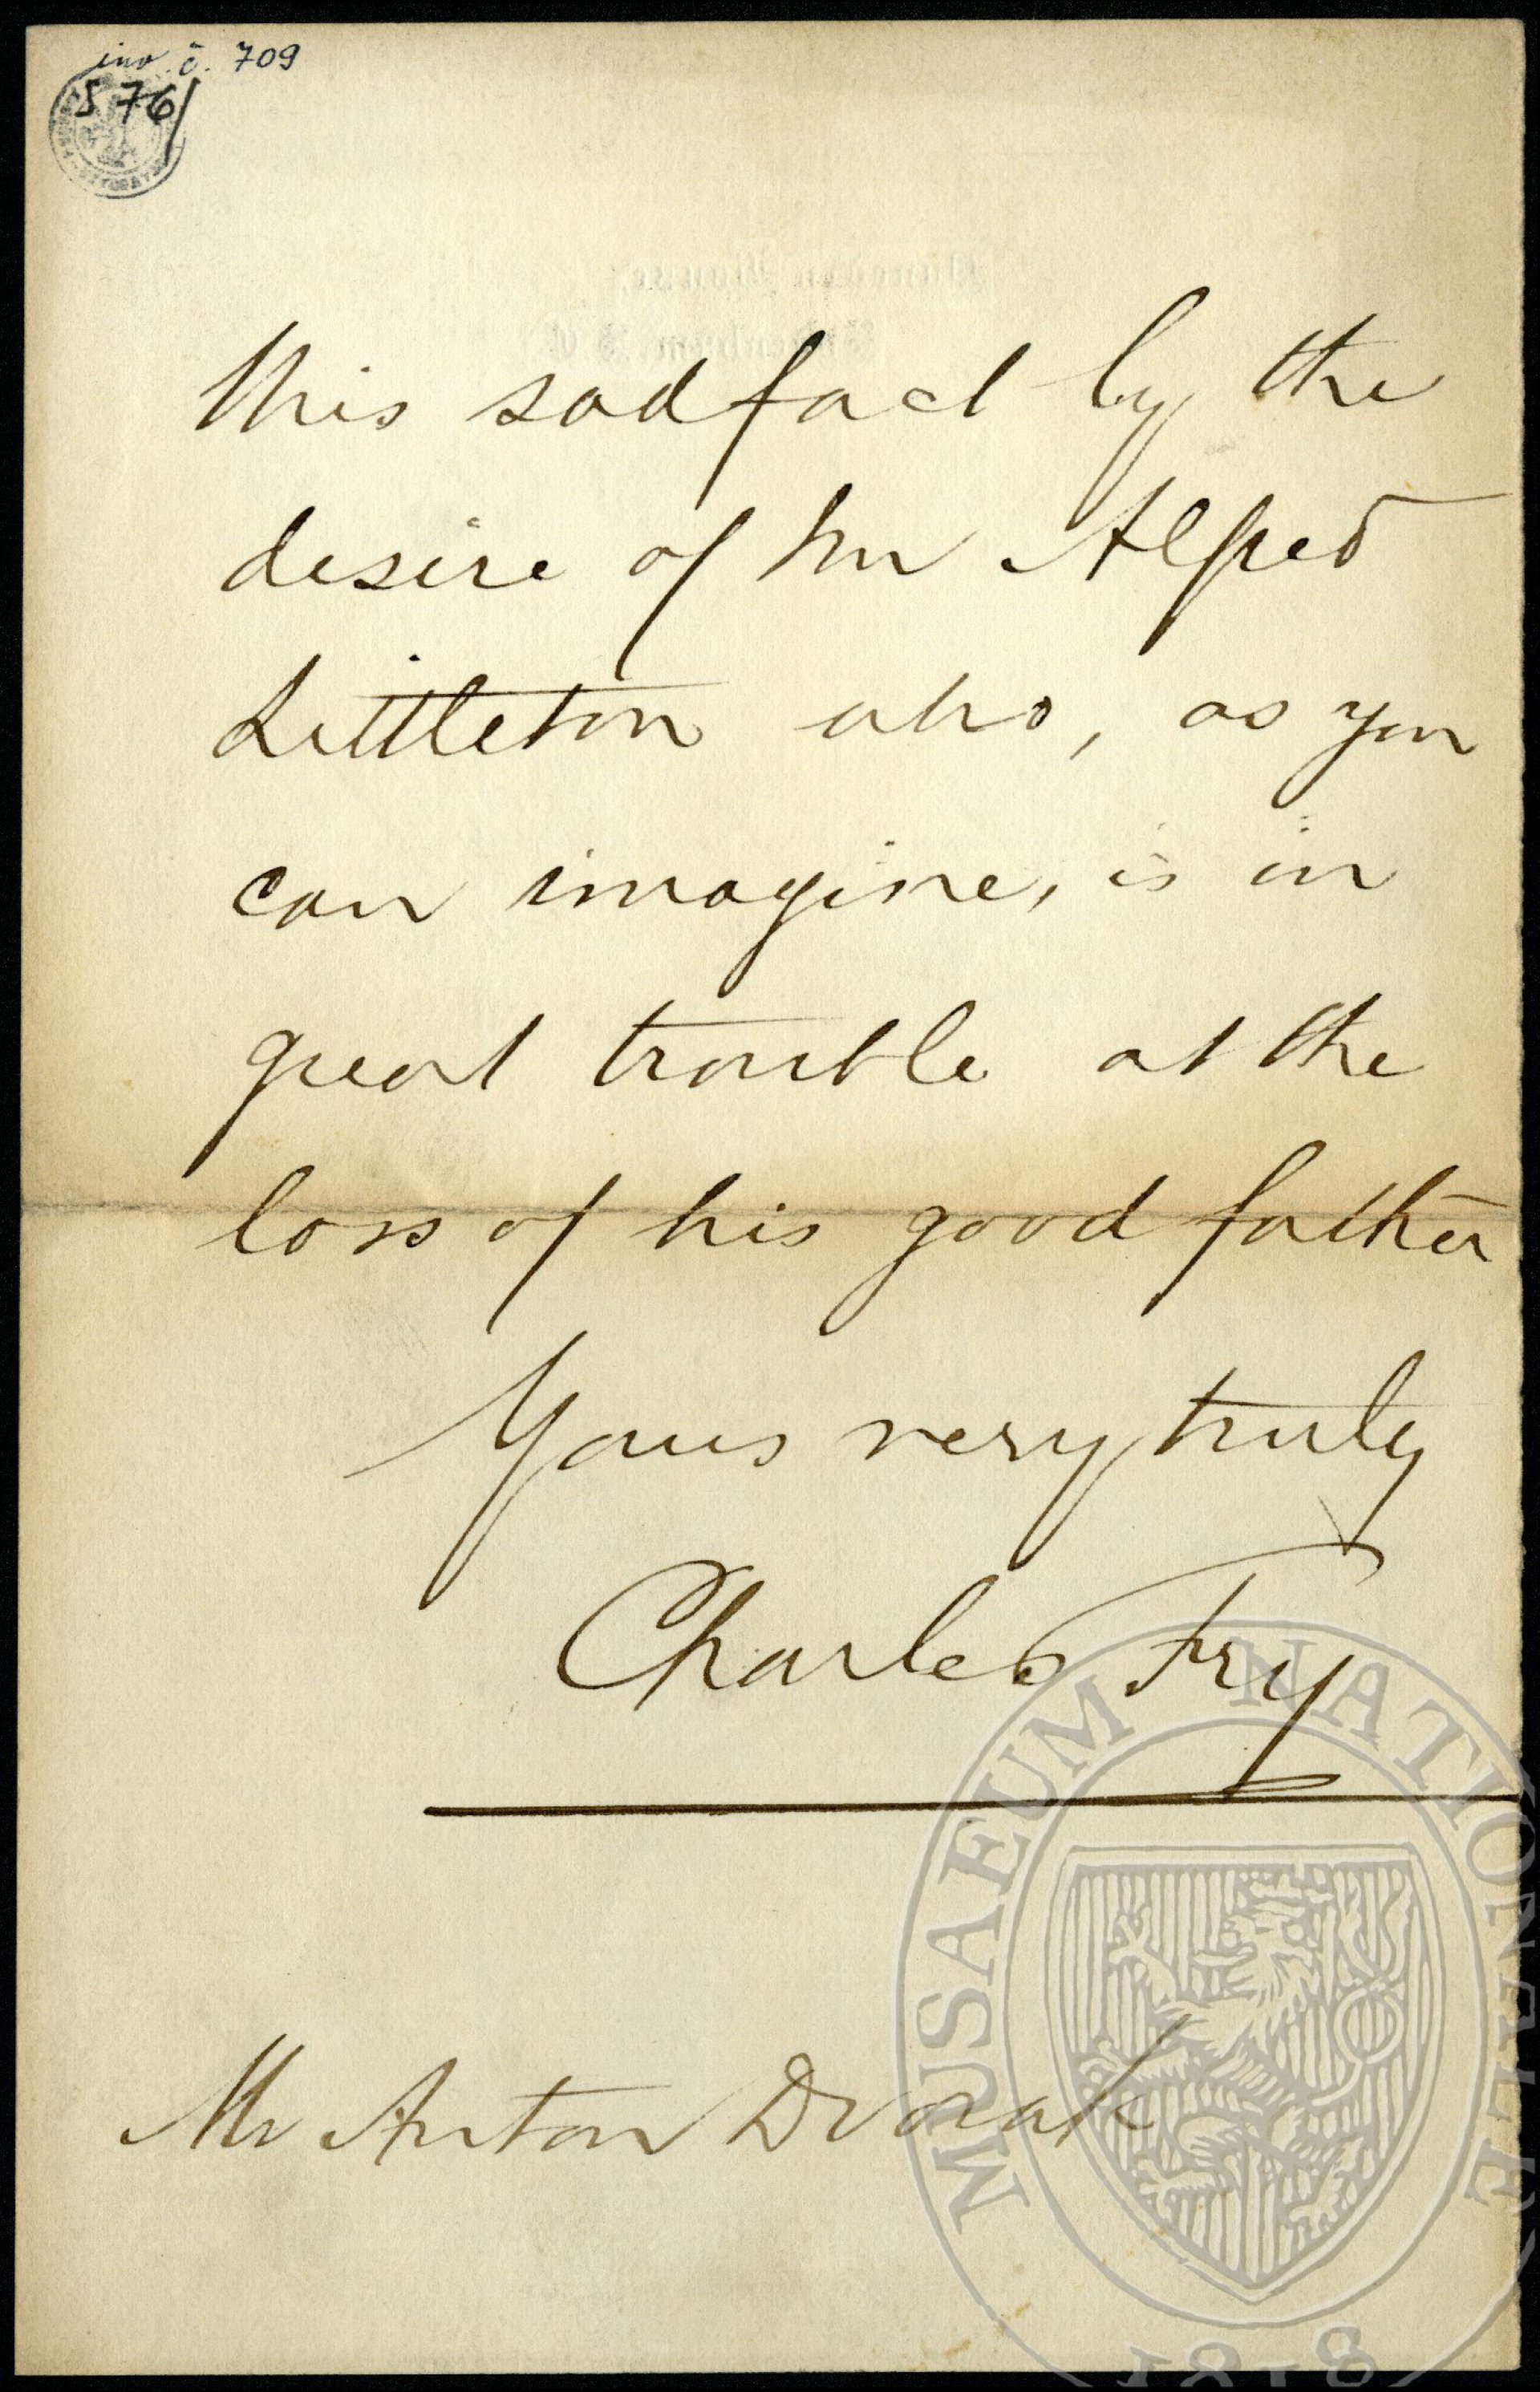 inv. č. 709
S 76/
this sad fact by the
desire of Mr Alfred
Littleton who, as you
can imagine, is in
great trouble at the
loss of his good father
Yours very truly
Charles Fry
Mr Anton Dvorak
MUSAEUM NATIONALE
1818